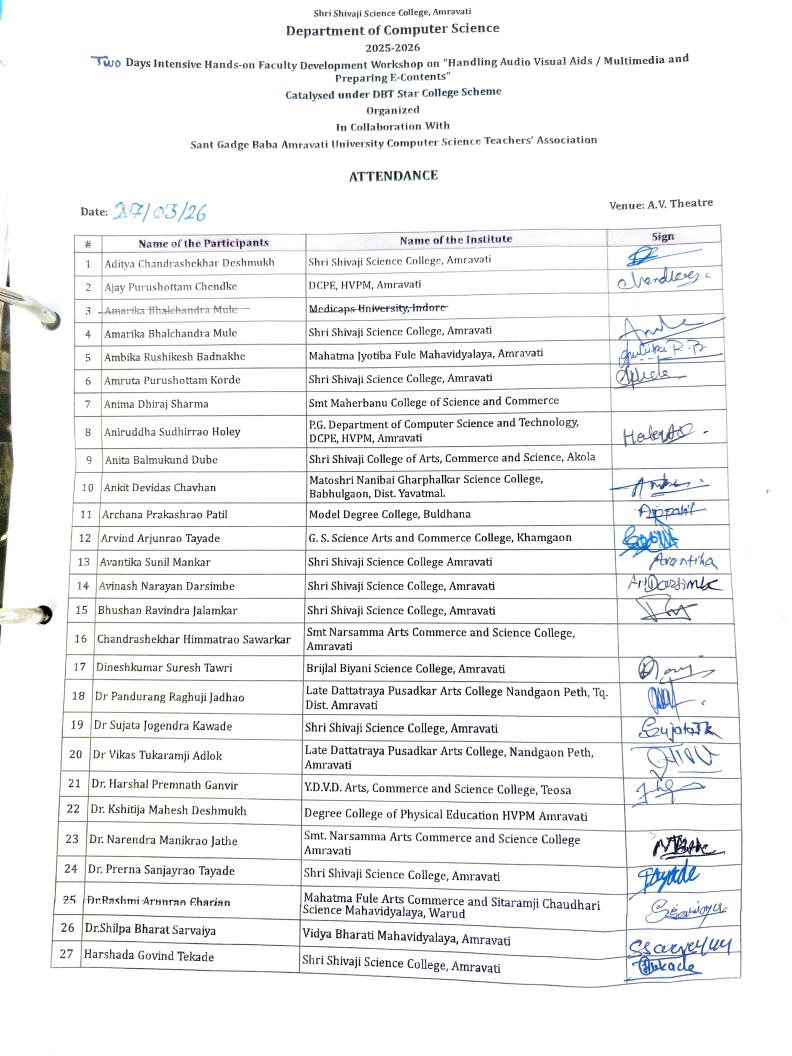 Shri Shivaji Science College, Amravati
Department of Computer Science
2025-2026
Two Days Intensive Hands-on Faculty Development Workshop on "Handling Audio Visual Aids / Multimedia and
Preparing E-Contents"
Catalysed under DBT Star College Scheme
Organized
In Collaboration With
Sant Gadge Baba Amravati University Computer Science Teachers' Association
ATTENDANCE
Date: 27/03/26 Venue: A.V. Theatre
# Name of the Participants Name of the Institute Sign
1 Aditya Chandrashekhar Deshmukh Shri Shivaji Science College, Amravati
2 Ajay Purushottam Chendke DCPE, HVPM, Amravati
3 Amarika Bhalchandra Mule Medicaps University, Indore
4 Amarika Bhalchandra Mule Shri Shivaji Science College, Amravati
5 Ambika Rushikesh Badnakhe Mahatma Jyotiba Fule Mahavidyalaya, Amravati
6 Amruta Purushottam Korde Shri Shivaji Science College, Amravati
7 Anima Dhiraj Sharma Smt Maherbanu College of Science and Commerce
8 Aniruddha Sudhirrao Holey P.G. Department of Computer Science and Technology,
DCPE, HVPM, Amravati
9 Anita Balmukund Dube Shri Shivaji College of Arts, Commerce and Science, Akola
10 Ankit Devidas Chavhan Matoshri Nanibai Gharphalkar Science College,
Babhulgaon, Dist. Yavatmal.
11 Archana Prakashrao Patil Model Degree College, Buldhana Appatil
12 Arvind Arjunrao Tayade G. S. Science Arts and Commerce College, Khamgaon
13 Avantika Sunil Mankar Shri Shivaji Science College Amravati Avantika
14 Avinash Narayan Darsimbe Shri Shivaji Science College, Amravati
15 Bhushan Ravindra Jalamkar Shri Shivaji Science College, Amravati
16 Chandrashekhar Himmatrao Sawarkar Smt Narsamma Arts Commerce and Science College,
Amravati
17 Dineshkumar Suresh Tawri Brijlal Biyani Science College, Amravati
18 Dr Pandurang Raghuji Jadhao Late Dattatraya Pusadkar Arts College Nandgaon Peth, Tq.
Dist. Amravati
19 Dr Sujata Jogendra Kawade Shri Shivaji Science College, Amravati
20 Dr Vikas Tukaramji Adlok Late Dattatraya Pusadkar Arts College, Nandgaon Peth,
Amravati
21 Dr. Harshal Premnath Ganvir Y.D.V.D. Arts, Commerce and Science College, Teosa
22 Dr. Kshitija Mahesh Deshmukh Degree College of Physical Education HVPM Amravati
23 Dr. Narendra Manikrao Jathe Smt. Narsamma Arts Commerce and Science College
Amravati
24 Dr. Prerna Sanjayrao Tayade Shri Shivaji Science College, Amravati Tayade
25 Dr.Rashmi Arunrao Charjan Mahatma Fule Arts Commerce and Sitaramji Chaudhari
Science Mahavidyalaya, Warud
26 Dr.Shilpa Bharat Sarvaiya Vidya Bharati Mahavidyalaya, Amravati
27 Harshada Govind Tekade Shri Shivaji Science College, Amravati